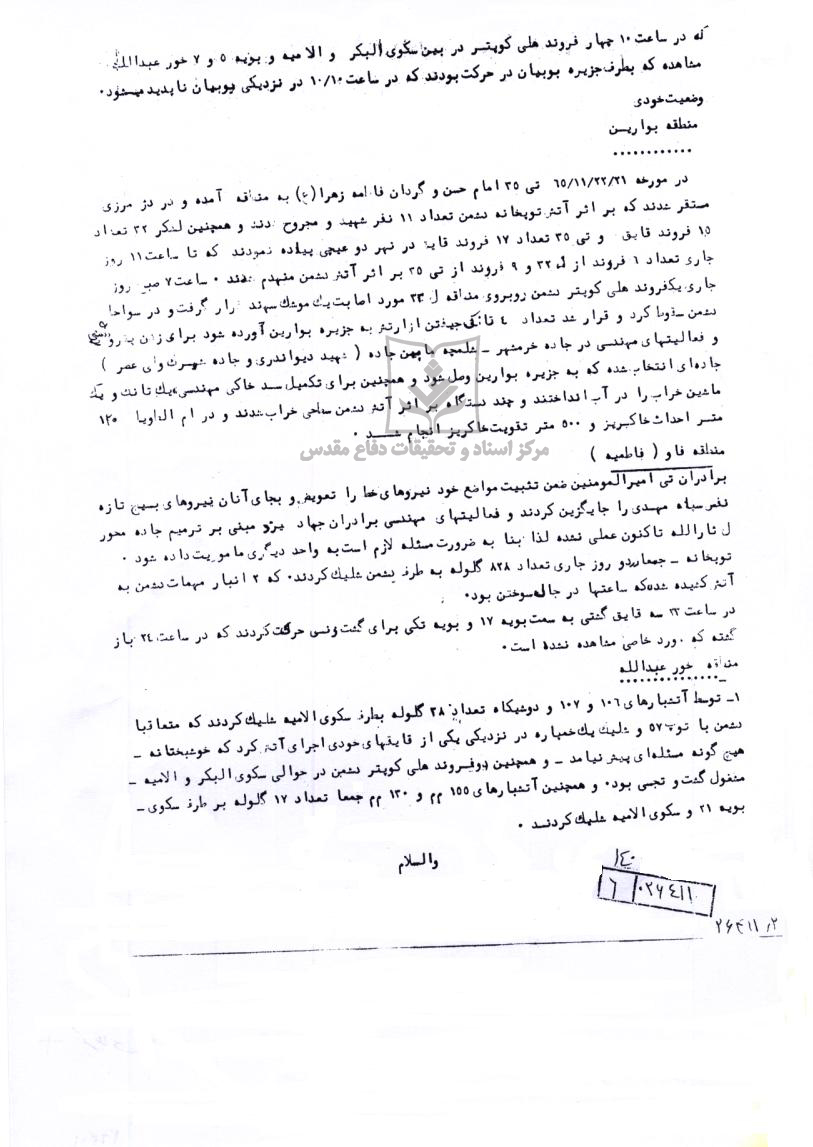 که در ساعت ۱۰ چهار فروند هلی کوپتر در بین سکوی البکر و الامیه و بویه ۵ و ۷ خور عبدالله
مشاهده که بطرف جزیره بوبیان در حرکت بودند که در ساعت ۱۰/۱۰ در نزدیکی بوبیان ناپدید میشود.
وضعیت خودی
منطقه بوارین
............
در مورخه ۶۵/۱۱/۲۲/۲۱ تی ۳۵ امام حسن و گردان فاطمه زهرا (ع) به منطقه آمده و در دژ مرزی
مستقر شدند که بر اثر آتش توپخانه دشمن تعداد ۱۱ نفر شهید و مجروح شدند و همچنین لشکر ۳۲ تعداد
۱۵ فروند قایق و تی ۳۵ تعداد ۱۷ فروند قایق در نهر دوعیجی پیاده نمودند که تا ساعت ۱۱ روز
جاری تعداد ۶ فروند از ل ۳۲ و ۹ فروند از تی ۳۵ بر اثر آتش دشمن منهدم شدند . ساعت ۷ صبح روز
جاری یکفروند هلی کوپتر دشمن روبروی منطقه ل ۲۳ مورد اصابت یک موشک سهند قرار گرفت و در سواحل
دشمن سقوط کرد و قرار شد تعداد ٤ تانک چیفتن از ارتش به جزیره بوارین آورده شود برای زدن
و فعالیتهای مهندسی در جاده خرمشهر ــ شلمچه مابین جاده ( شهید دیواندری و جاده شهرک ولی عصر )
جاده‌ای انتخاب شده که به جزیره بوارین وصل شود و همچنین برای تکمیل سد خاکی مهندسی، یک تانک و یک
ماشین خراب را در آب انداختند و چند دستگاه بر اثر آتش دشمن سطحی خراب شدند و در ام الطویل ۱۲۰
متر احداث خاکریز و ۵۰۰ متر تقویت خاکریز انجام شد .
مرکز اسناد و تحقیقات دفاع مقدس
منطقه فاو ( فاطمیه )
برادران تی امیرالمومنین ضمن تثبیت مواضع خود نیروهای خط را تعویض و بجای آنان نیروهای بسیج تازه
نفس سپاه مهدی را جایگزین کردند و فعالیتهای مهندسی برادران جهاد یزد مبنی بر ترمیم جاده محور
ل ثارالله تاکنون عملی نشده لذا بنا به ضرورت مسئله لازم است به واحد دیگری ماموریت داده شود .
توپخانه ــ جمعا در روز جاری تعداد ۸۲۸ گلوله به طرف دشمن شلیک کردند. که ۲ انبار مهمات دشمن به
آتش کشیده شد که ساعتها در حال سوختن بود.
در ساعت ۲۳ سه قایق گشتی به سمت بویه ۱۷ و بویه تکی برای گشت زنی حرکت کردند که در ساعت ۲٤ باز
گشته که مورد خاصی مشاهده نشده است .
منطقه خور عبدالله
...............
۱ــ توسط آتشبارهای ۱۰۶ و ۱۰۷ و دوشیکاه تعداد ۳۸ گلوله بطرف سکوی الامیه شلیک کردند که متعاقبا
دشمن با توپ ۵۷ و شلیک یک خمپاره در نزدیکی یکی از قایقهای خودی اجرای آتش کرد که خوشبختانه ــ
هیچ گونه مسئله‌ای پیش نیامد ــ و همچنین دو فروند هلی کوپتر دشمن در حوالی سکوی البکر و الامیه ــ
مشغول گشت و تجسس بود. و همچنین آتشبارهای ۱۵۵ مم و ۱۳۰ مم جمعا تعداد ۱۷ گلوله بر طرف سکوی ــ
بویه ۲۱ و سکوی الامیه شلیک کردند .
والسلام
۱٤۰
۰۲۶٤۱۱ ۶
۲۶۴۱۱ /۲